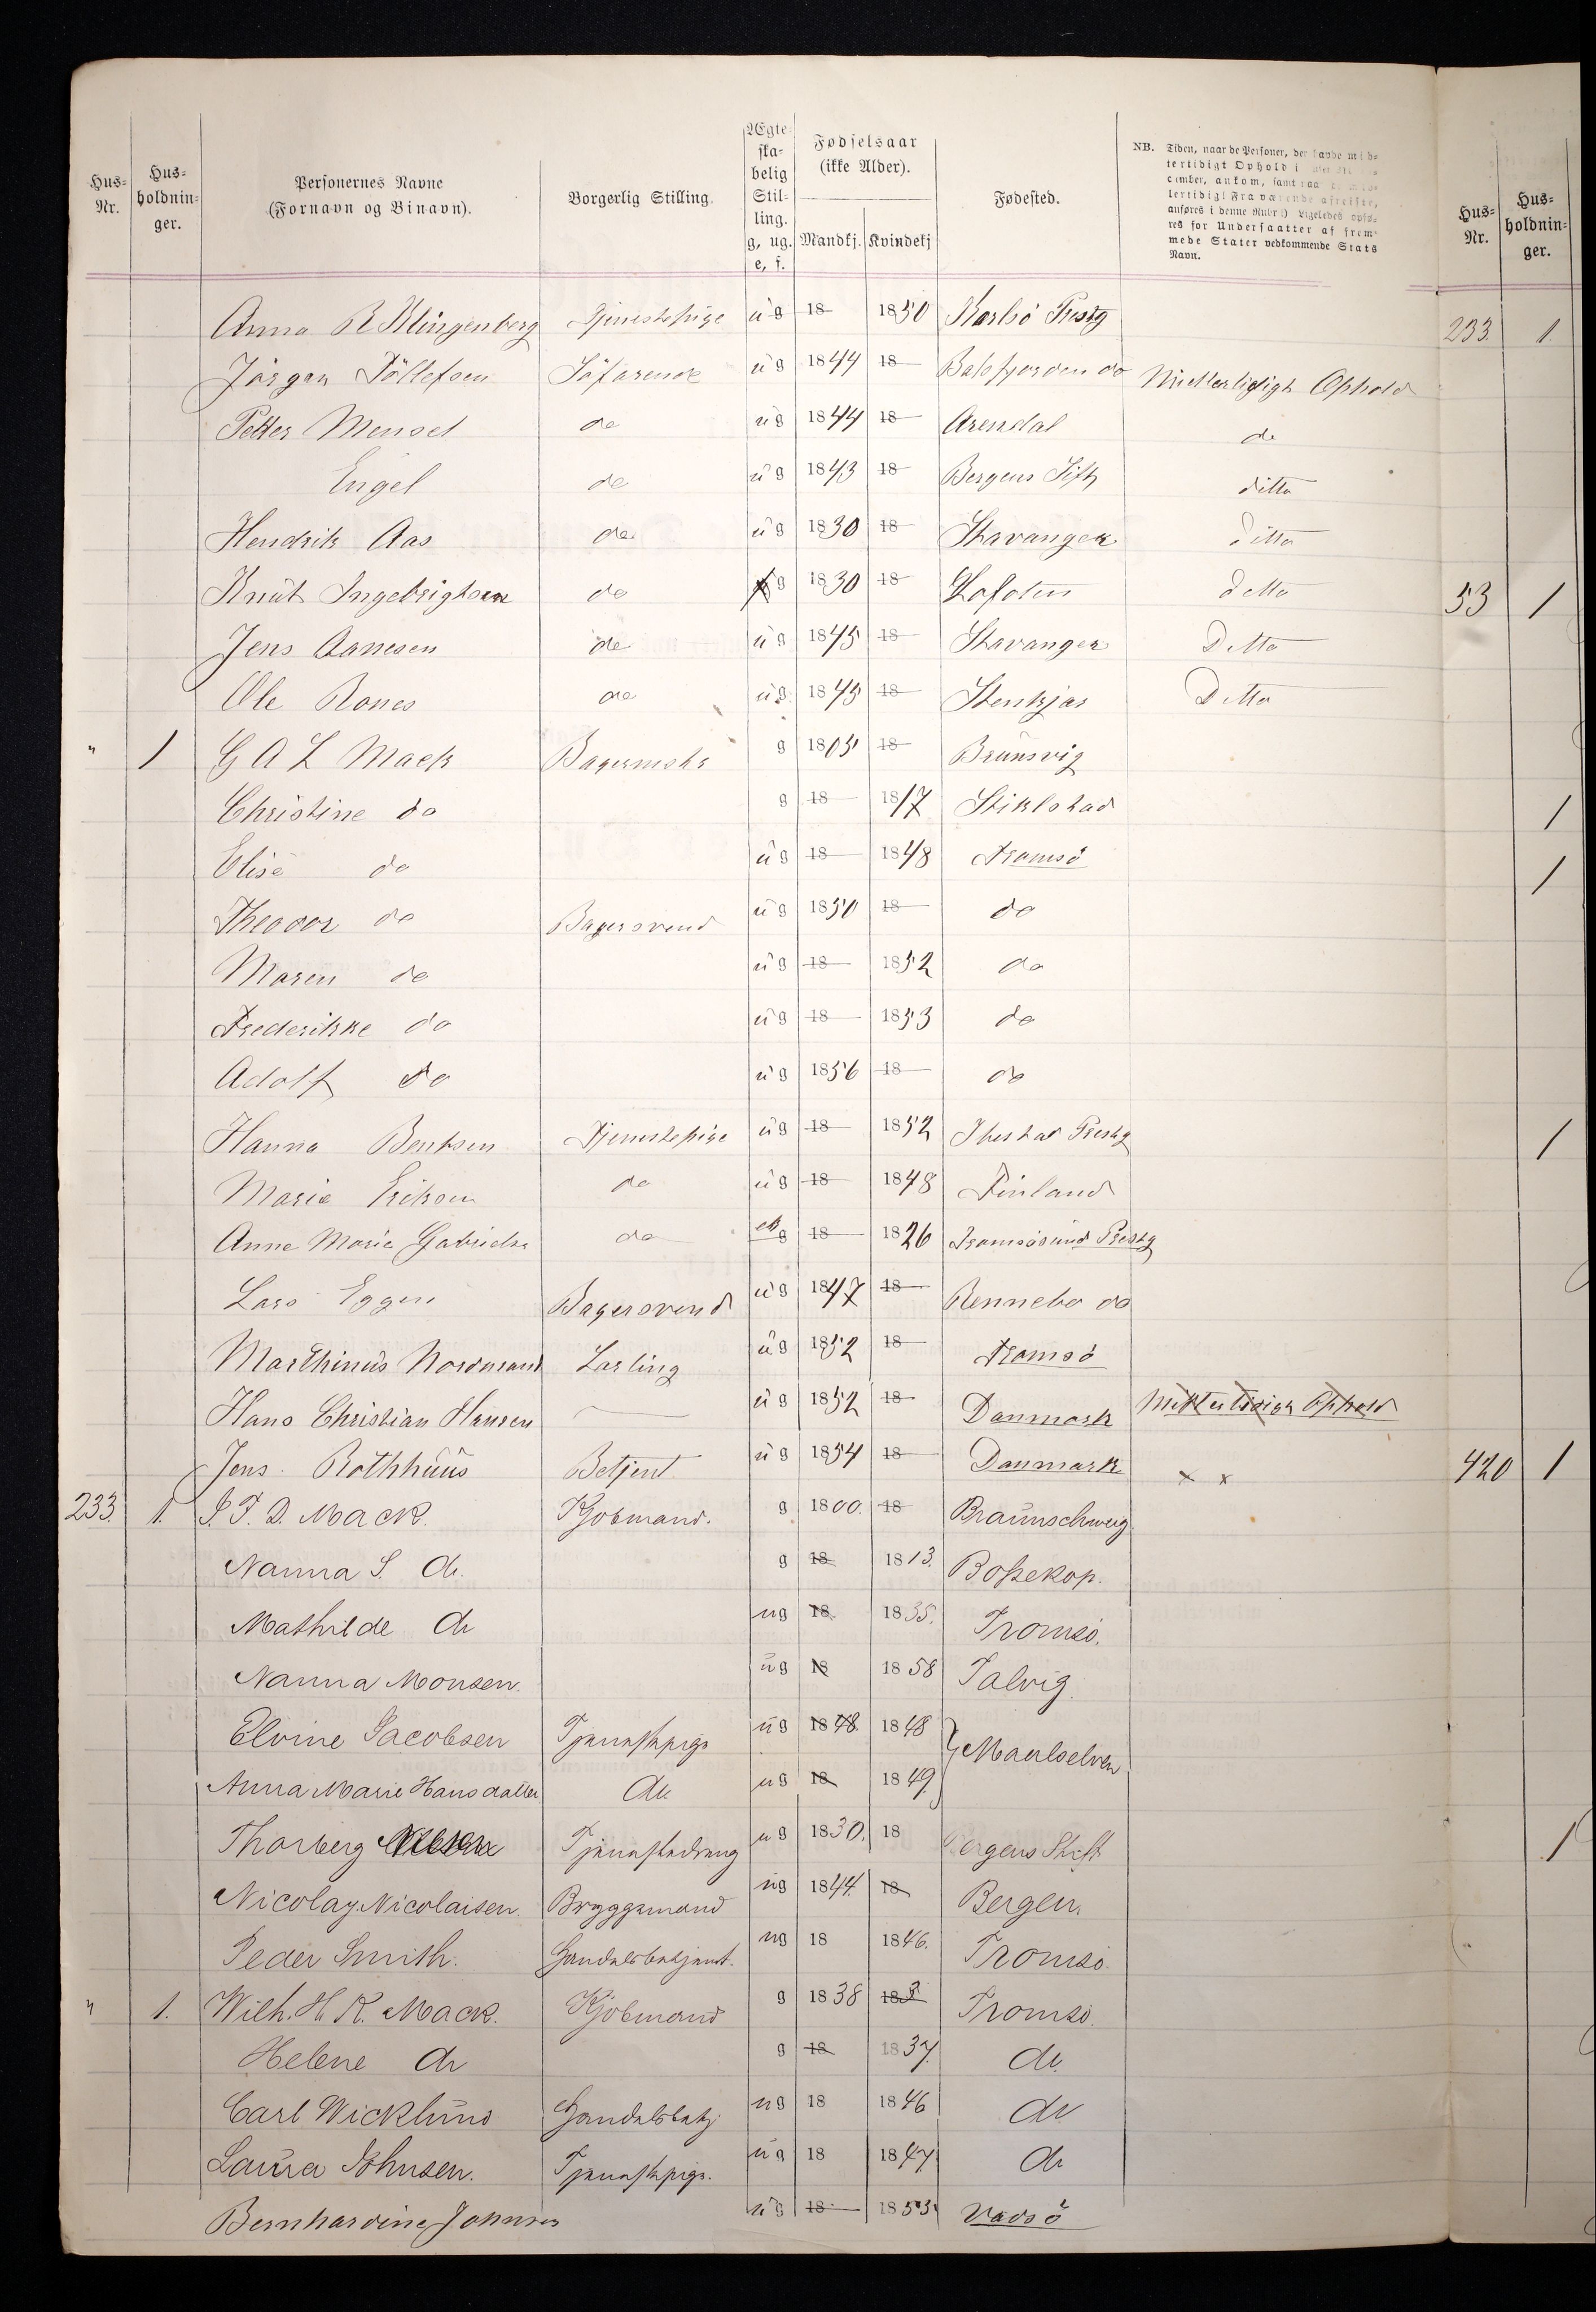 Hus-Nr. Hus-holdnin-ger. Personernes Navne (Fornavn og Binavn). Borgerlig Stilling. Ægte-ska-belig Stil-ling. g, ug. e, f. Fødselsaar (ikke Alder). Mandkj. Kvindekj Fødested. NB. Tiden, naar de Personer, der havde mid-
tertidigt Ophold i
cember, ankom, samt naar
tertidigt Fraværende afreiste,
anføres i denne Rubr.) Ligeledes opfø-
res for Undersaatter af frem-
mede Stater vedkommende Stats
Navn. Hus-Nr. Hus-holdnin-ger.
Anna R Klingenberg Tjenestepige ug 18 1850 Karlsö Præstg 233. 1.
Jörgen Töllefsen Söfarende ug 1844 18 Balsfjorden do Midlertidigt Ophold
Petter Mensel do ug 1844 18 Arendal do
Engel do ug 1843 18 Bergens Stift ditto
Hendrik Aas do ug 1830 18 Stavanger Ditto
Knut Ingebrigtsen do g 1830 18 Lofoten ditto 53 1
Jens Aanesen do ug 1845 18 Stavanger Ditto
Ole Rones do ug 1845 18 Stenkjær Ditto
" 1 G A L Mack Bagermstr g 1805 18 Brunsvig
Christine do g 18 1817 Stiklestad 1
Elise do ug 18 1848 Tromsö 1
Theodor do Bagersvend ug 1850 18 do
Maren do ug 18 1852 do
Frederikke do ug 18 1853 do
Adolf do ug 1856 18 do
Hanna Bentsen Tjenestepige ug 18 1852 Ibestad Præstg 1
Maria Eriksen do ug 18 1848 Finland
Anne Maria Gabrielsn do g 18 1826 Tromsösund Præstg
Lars Eggen Bagersvend ug 1847 18 Rennebo do
Marthinus Nordmand Larling ug 1852 18 Tromsö
Hans Christian Hansen ug 1852 18 Danmark Midlertidigt Ophold
Jens Rothhuus Betjent ug 1854 18 Danmark x x 420 1
233. 1. J. T. D. Mack. Kjobmand. g 1800. 18 Braunschweig.
Nanna S. do. g 18 1813. Bossekop.
Mathilde do ug 18. 1835. Tromsö.
Nanna Monsen. ug 18 1858 Talvig.
Elvine Jacobsen Tjenestepige ug 1848. 1848 } Maalselven
Anna Marie Hansdatter do. ug 18 1849.
Thorberg Tjenestedreng ug 1830. 18 Bergens Stift 1
Nicolay Nicolaisen. Bryggemand ug 1844. 18 Bergen.
Peder Smith. Handelsbetjent. ug 18 1846. Tromsö.
" 1. Wilh. H. R. Mack. Kjöbmand g 1838 183 Tromsö.
Helene do g 18 1837. do.
Carl Wicklund Handelsbetj. ug 18 1846 do
Laura Johnsen. Tjenestepige. ug 18 1847. do
Bernhardine Johnsen ug 18 1853 Vadsö